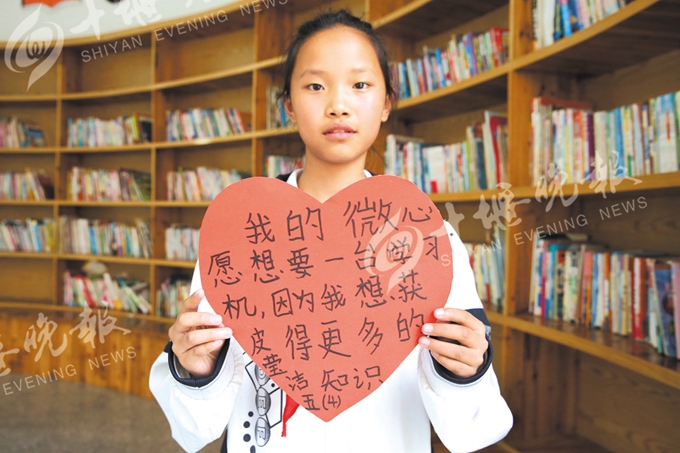 SHIYAN EVENING NEWS
我的微心
愿想要一台学习
机,因为我想获
得更多的
知识
皮
莹
洁
五(4)
十堰晚报
EVENING NEWS
晚报
EVENING NEWS